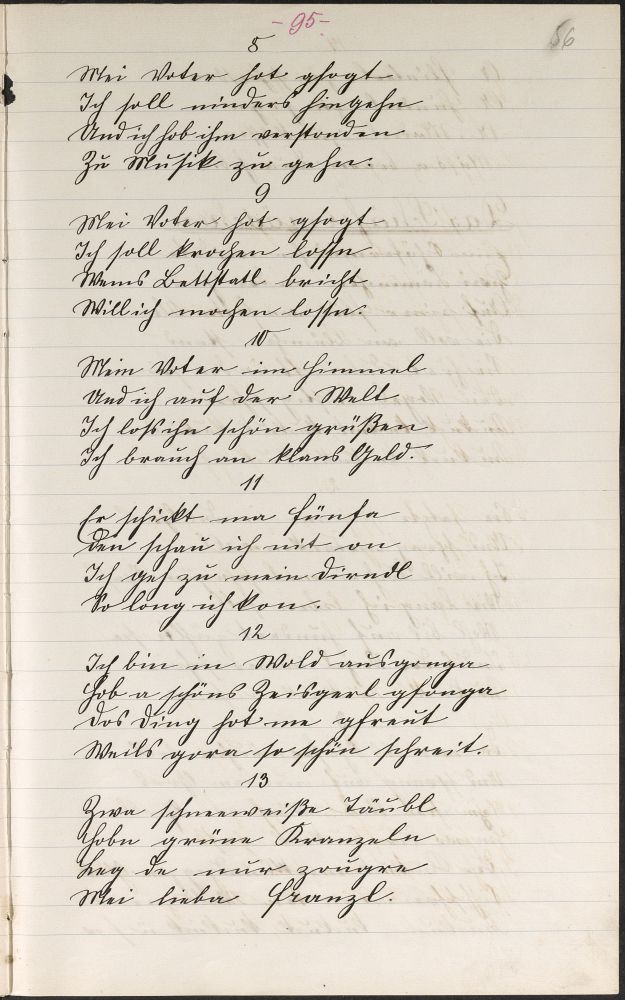 - 95 -
56
8
Mei Voter hot gsogt
Ich soll ninders hingehn
Und ich hob ihm verstonden
Zu Musik zu gehn.
9
Mei Voter hot gsogt
Ich soll krochen lossn
Wems Bettstatl bricht
Will ich mochen lossn.
10
Mein Voter im Himmel
Und ich auf der Welt
Ich loß ihn schön grüßen
Ich brauch an klans Geld.
11
Er schickt ma fünfa
Den schau ich nit on
Ich geh zu mein Dirndl
So long ich kon.
12
Ich bin in Wold ausgonga
Hob a schöns Zeisgerl gfonga
Dos Ding hot me gfreut
Weils gora so schön schreit.
13
Zwa schneeweiße Täubl
Hobn grüne Kranzeln
Leg de nur
Mei lieba Franzl.